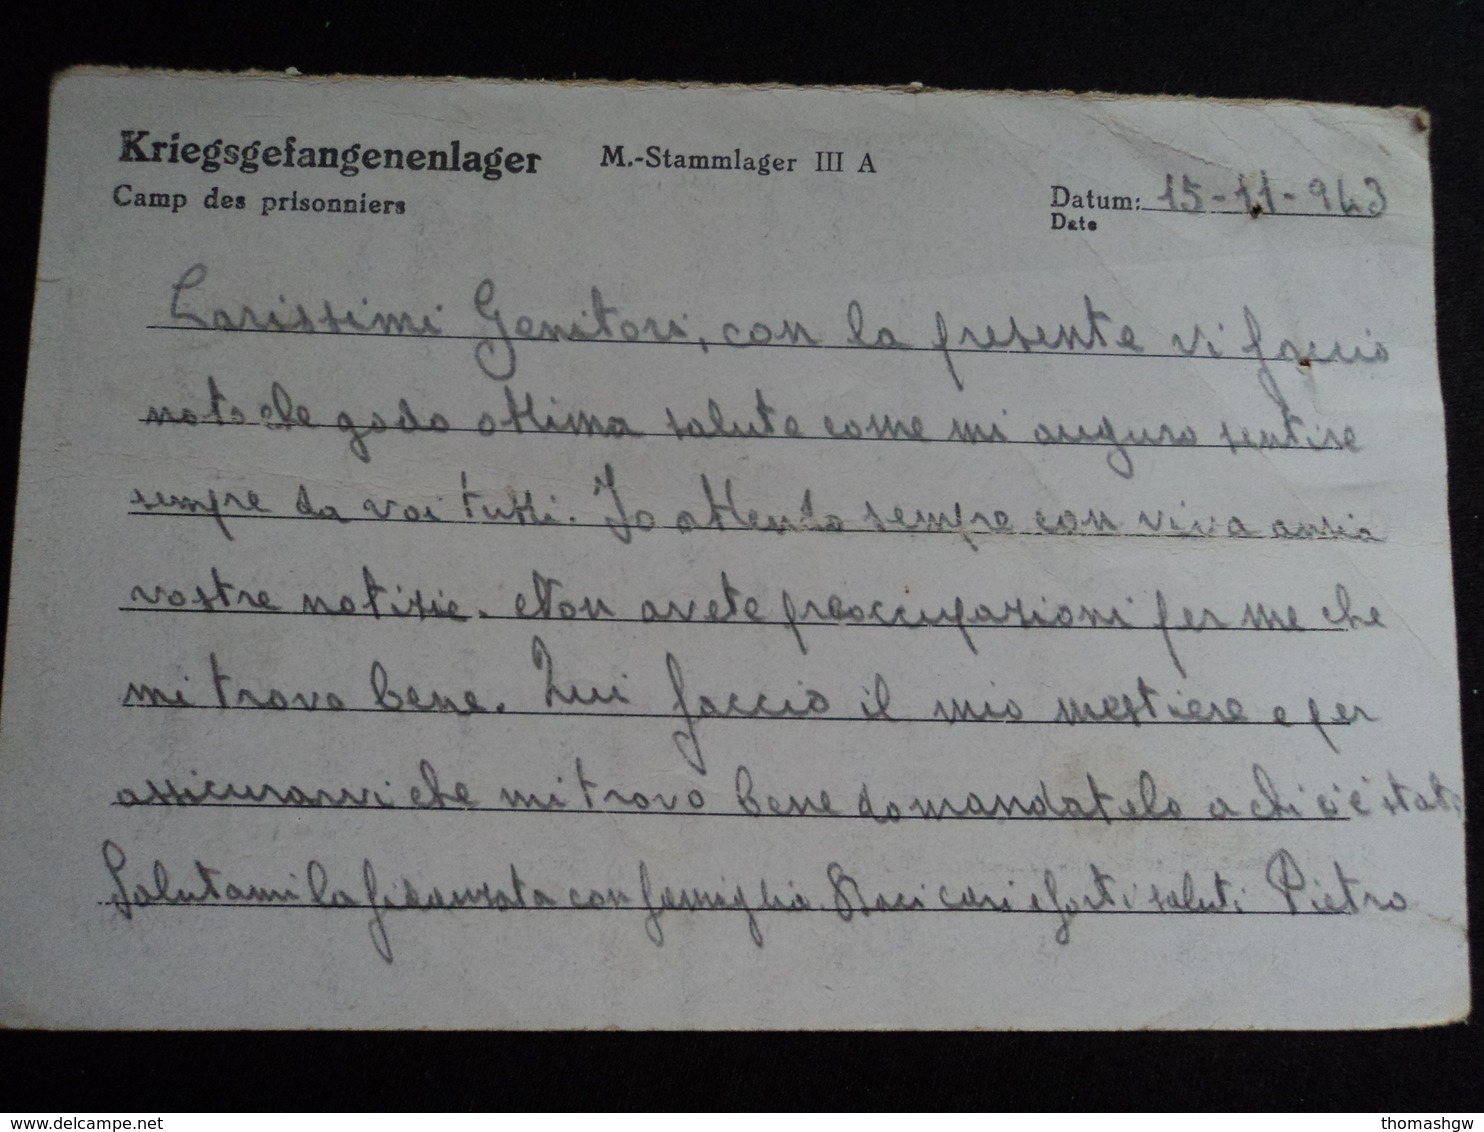 Kriegsgefangenenlager M.-Stammlager III A
Camp des prisonniers
Datum: 15-11-943
Date
Carissimi Genitori, con la presente vi faccio
noto che godo ottima salute come mi auguro sentire
sempre da voi tutti. Io attendo sempre con viva ansia
vostre notizie. Non avete preoccupazioni per me che
mi trovo bene. Qui faccio il mio mestiere e per
assicurarvi che mi trovo bene domandatelo a chi c'è stato
Salutami la fidanzata con famiglia. Baci cari e forti saluti Pietro
thomashgw